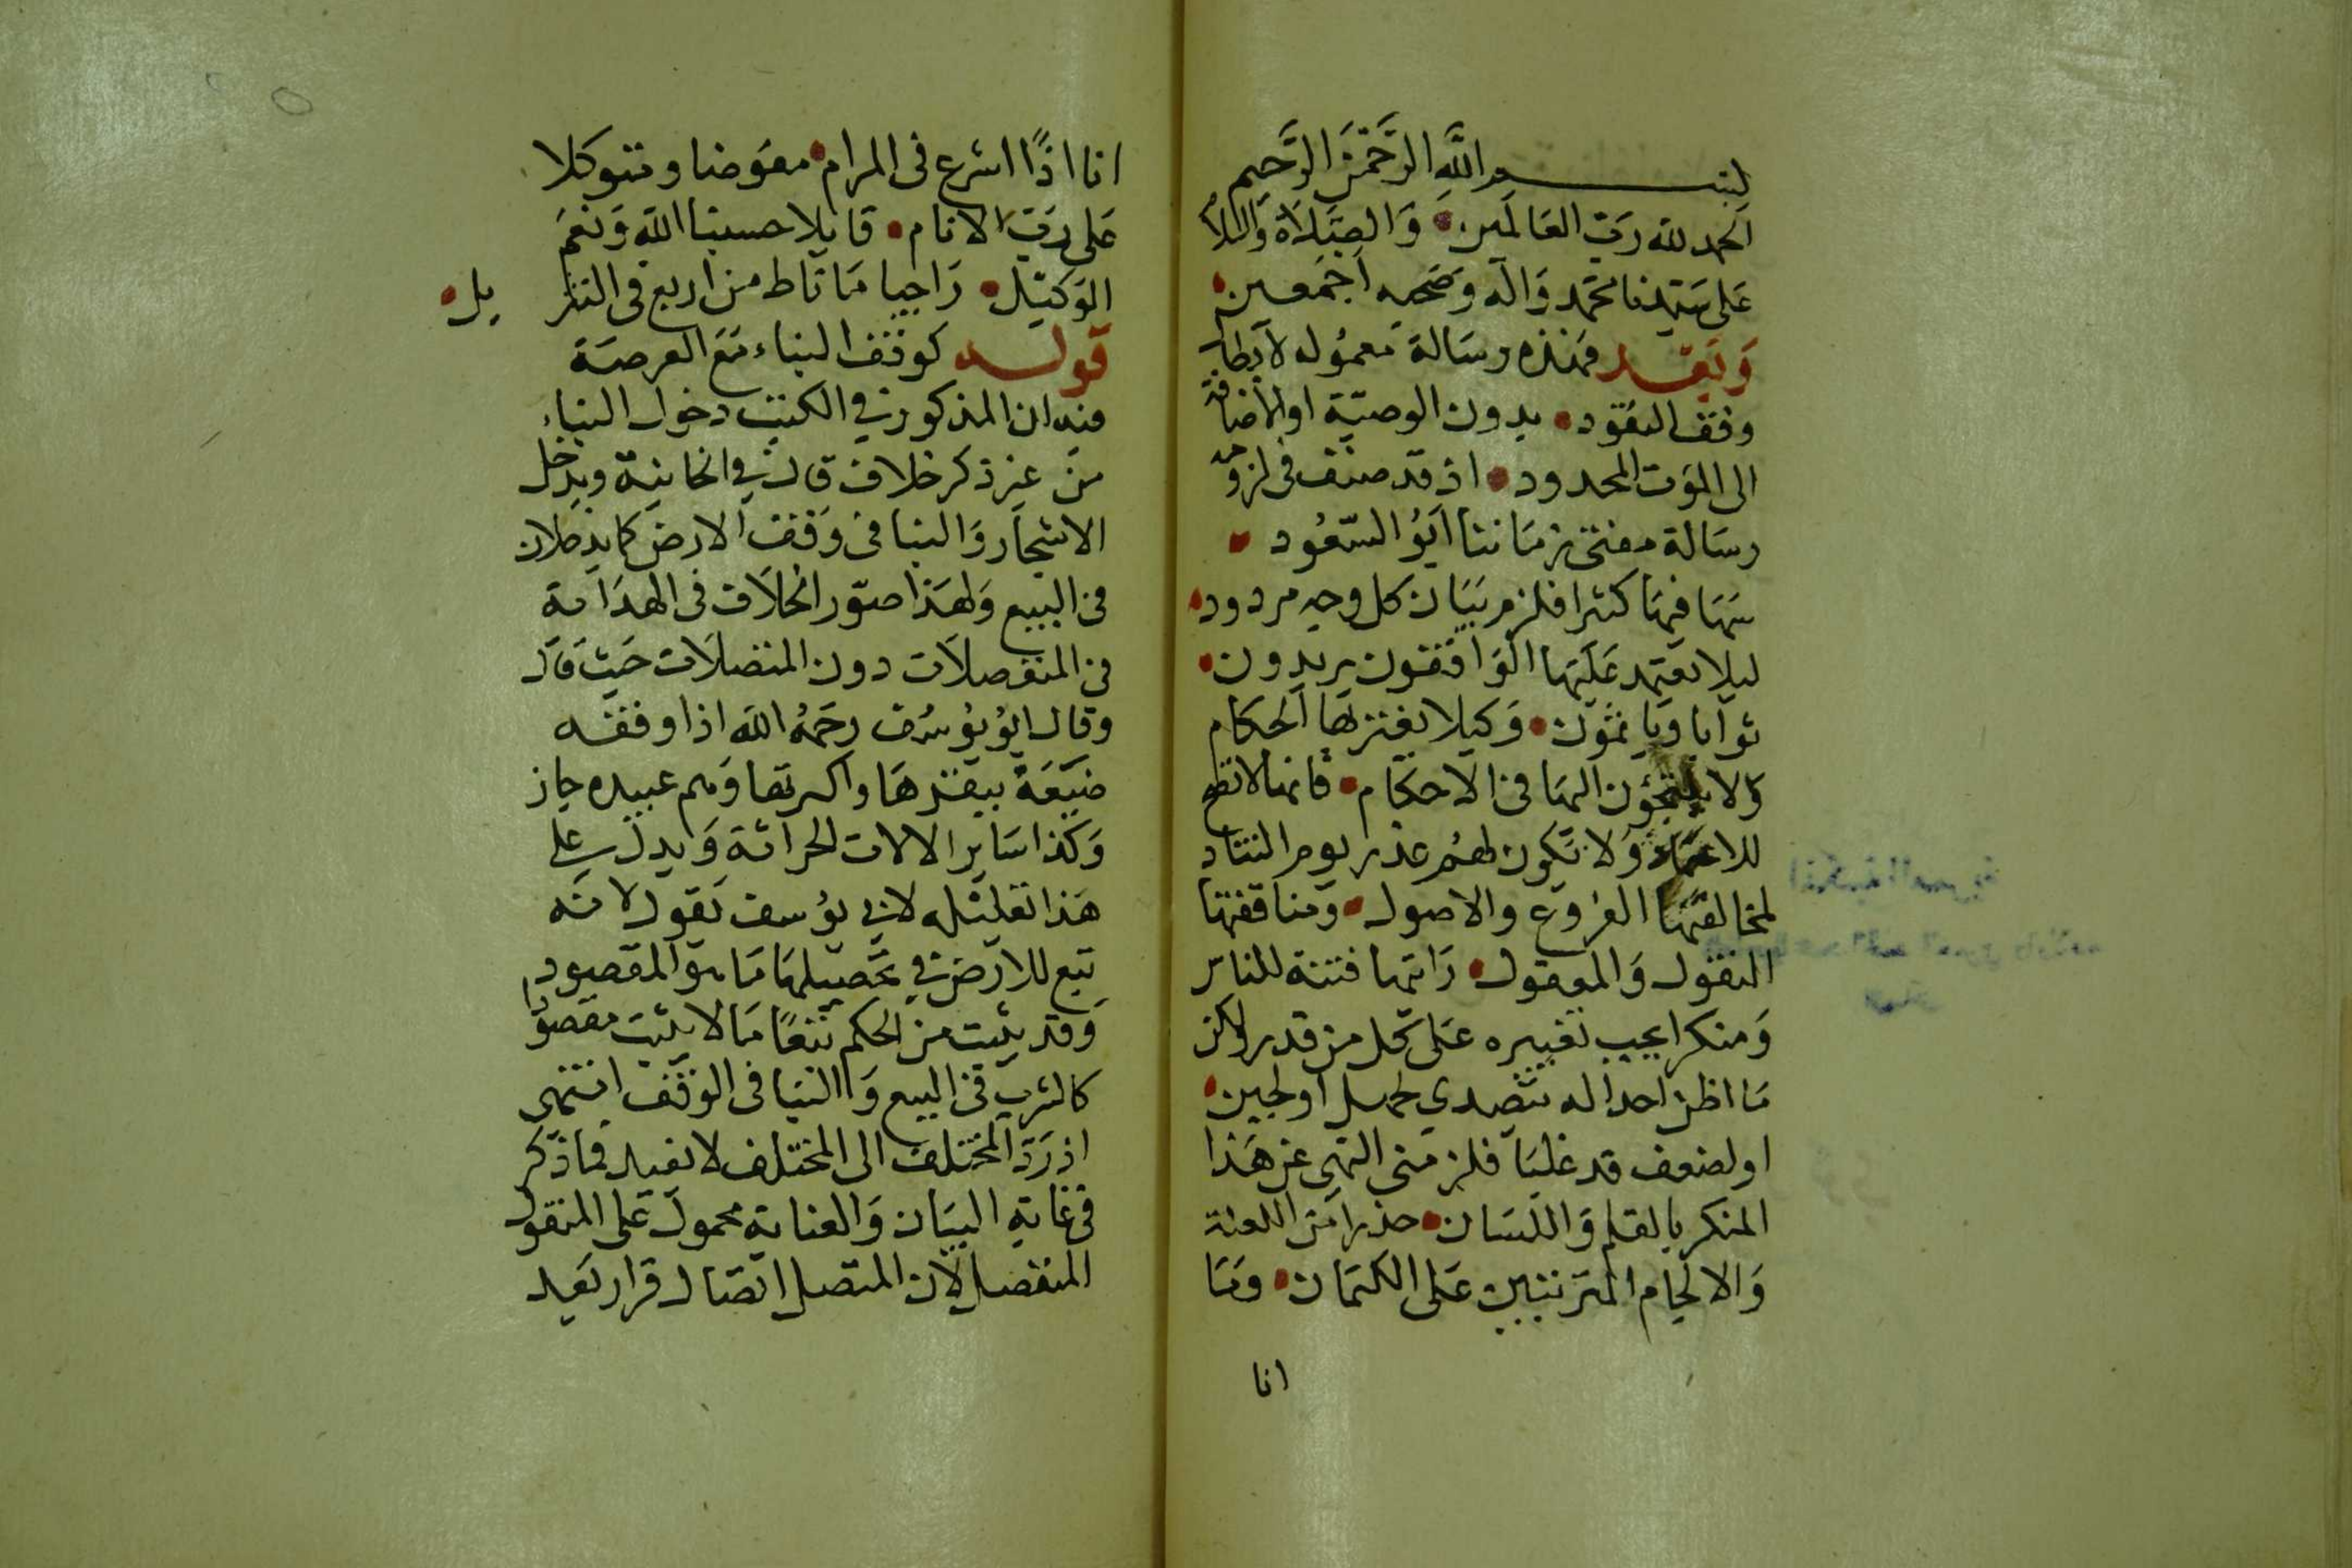 بسم الله الرحمن الرحيم
الحمد لله رب العالمين والصلاة والسلام
على سيدنا محمد واله وصحبه اجمعين
وبعد فهذه رسالة معموله لابطال
وقف النقود بدون الوصية او الاضافة
الى الموت المحدود اذ قد صنف فى لزومه
رسالة مفتى زماننا ابو السعود
سها فيها كثيرا فلزم بيان كل وجه مردود
ليلا يعتمد عليها الواقفون يريدون
ثوابا وياثمون وكيلا يغتر بها الحكام
ولا يلتجؤن اليها فى الاحكام فانها لا تصلح
للاعتماد ولا تكون لهم عذر يوم التناد
لمخالفتها الفروع والاصول ومناقضتها
المنقول والمعقول وانها فتنة للناس
ومنكرا يجب تغييره على كل من قدر ولاكن
ما اظن احدا له يتصدي لجهل او لجبن
او لضعف قد غلبا فلزمنى النهى عن هذا
المنكر بالقلم واللسان حذرا من اللعنة
والالجام المترتبين على الكتمان وها
انا
انا اذًا اشرع فى المرام مفوضا ومتوكلا
على رب الانام قايلا حسبنا الله ونعم
الوكيل راجيا ما ناط من اربع فى التنز يل
قوله كوقف البناء مع العرصة
فيه ان المذكور في الكتب دخول البناء
من غير ذكر خلاف قال في الخانية ويدخل
الاشجار والبنا فى وقف الارض كما يدخلان
فى البيع ولهذا صور الخلاف فى الهداية
فى المنفصلات دون المتصلات حيث قال
وقال ابو يوسف رحمه الله اذا وقف
ضيعة ببقرها واكرتها وهم عبيده جاز
وكذا ساير الالات الحراثة ويدل على
هذا تعليله لابي يوسف بقوله لانه
تبع للارض في تحصيلها ما هو المقصود
وقد يثبت من الحكم تبعًا ما لا يثبت مقصودا
كالشرب فى البيع والبنا فى الوقف انتهى
اذ رد المختلف الى المختلف لا يفيد فما ذكر
فى غاية البيان والعناية محمول على المنقول
المنفصل لان المتصل اتصال قرار يعد